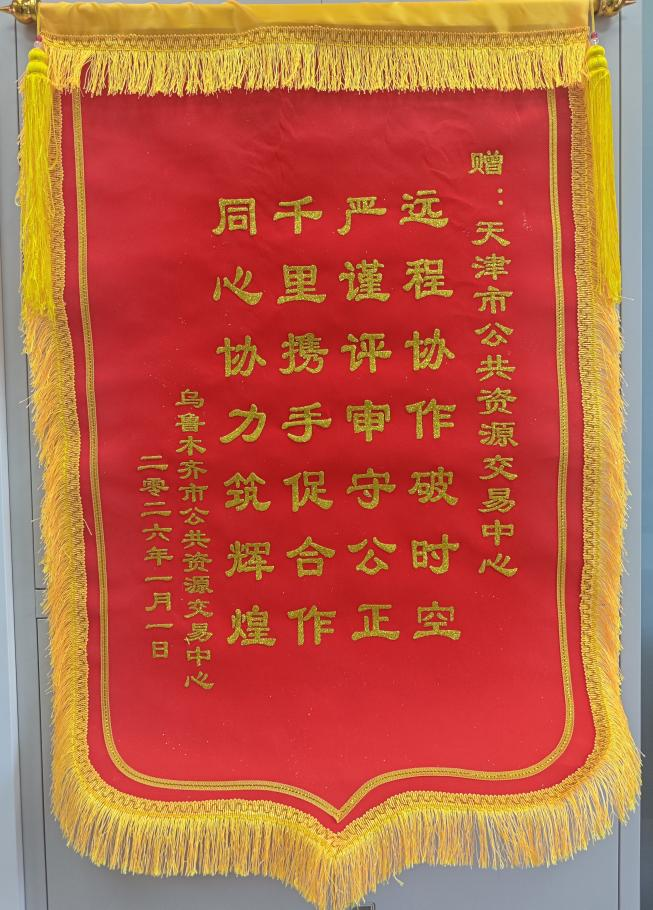 赠：天津市公共资源交易中心
远程协作破时空
严谨评审守公正
千里携手促合作
同心协力筑辉煌
乌鲁木齐市公共资源交易中心
二零二六年一月一日